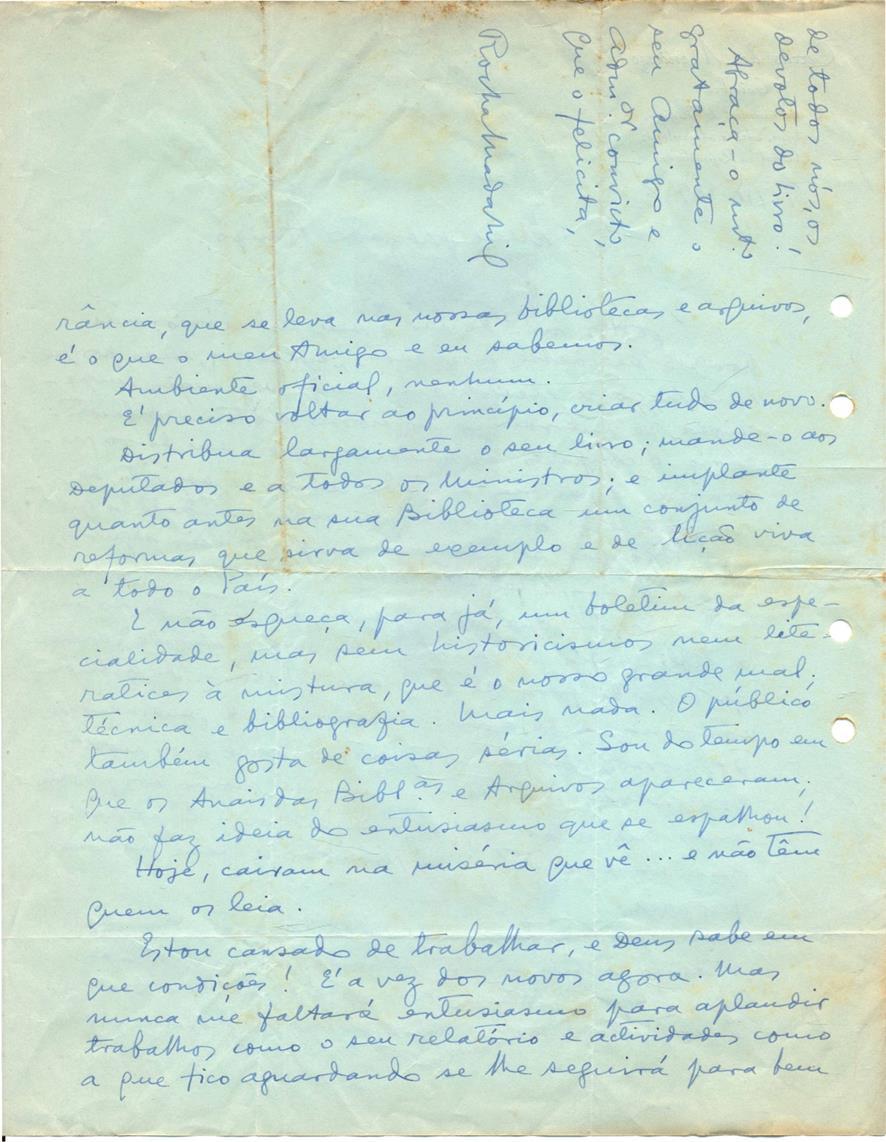 rância, que se leva nas nossas bibliotecas e arquivos,
é o que o meu Amigo e eu sabemos.
Ambiente oficial, nenhum.
E' preciso voltar ao princípio, criar tudo de novo.
Distribua largamente o seu livro; mande-o aos
Deputados e a todos os Ministros; e implante
quanto antes na sua Biblioteca um conjunto de
reformas que sirva de exemplo e de lição viva
a todo o País.
E não esqueça, para já, um boletim da espe-
cialidade, mas sem historicismos nem lite-
ratices à mistura, que é o nosso grande mal.
técnica e bibliografia. Mais nada. O público
também gosta de coisas sérias. Sou do tempo em
que os Anais das Bibl.as e Arquivos apareceram;
não faz ideia do entusiasmo que se espalhou!
Hoje, cairam na miséria que vê ... e não têm
quem os leia.
Estou cansado de trabalhar, e Deus sabe em
que condições! E' a vez dos novos agora. Mas
nunca me faltará entusiasmo para aplaudir
trabalhos como o seu relatório e actividades como
a que fico aguardando se lhe seguirá para bem
de todos nós, os
devotos do livro!
Abraça-o mto
gratamente o
seu Amigo e
Adm.or convicto,
que o felicita,
Rocha Madahil